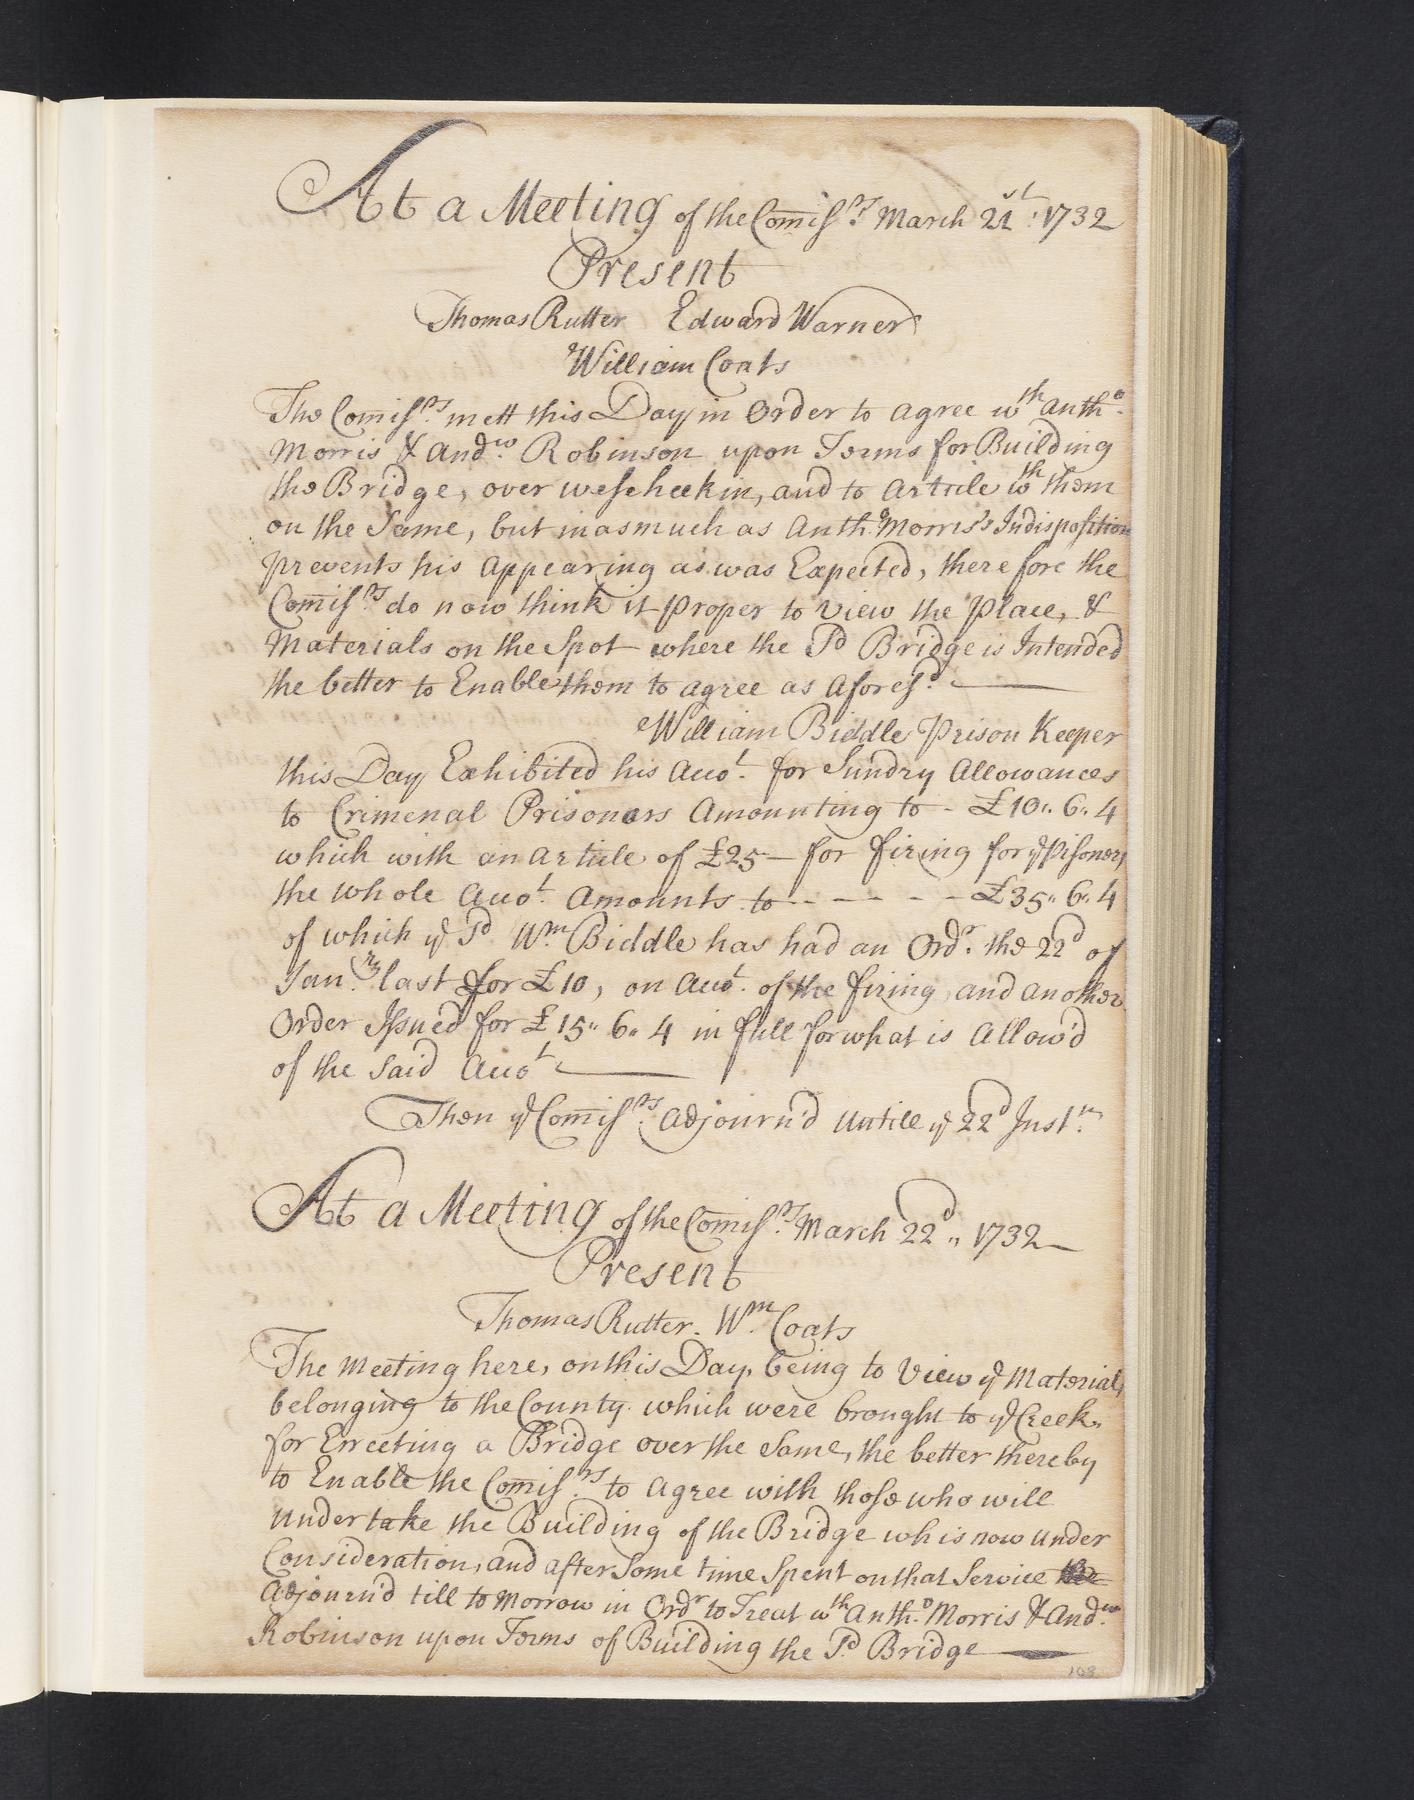 At a Meeting of the Comiss.rs March 21st: 1732
Present
Thomas Rutter Edward Warner
William Coats
The Comiss.rs mett this Day in Order to agree wth Anth.o
Morris & And.w Robinson upon Terms for Building
the Bridge, over wesscheekin, and to Article wth them
on the Same, but inasmuch as Anth.o Morris's Indisposition
prevents his appearing as was Expected, therefore the
Comiss.rs do now think it proper to view the Place, &
Materials on the Spot where the Sd Bridge is Intended
the better to Enable them to agree as afores.d
William Biddle Prison Keeper
this Day Exhibited his Acco.t for Sundry Allowances
to Crimenal Prisoners Amounting to - £10„ 6„ 4
which with an Article of £25 — for firing for ye Prisoners
the whole Acco.t Amounts to - - - - - £35„ 6„ 4
of which ye Sd W.m Biddle has had an Ord.r the 22d of
Jan.ry last for £10, on Acco.t of the firing, and another
Order Issued for £15„ 6„ 4 in full for what is Allow'd
of the Said Acco.t
Then ye Comiss.rs adjourn'd untill ye 22d Inst.n
At a Meeting of the Comiss.rs March 22d„ 1732
Present
Thomas Rutter. W.m Coats
The meeting here, on this Day, being to View ye Materials
belonging to the County which were brought to ye Creek,
for Erecting a Bridge over the Same, the better thereby
to Enable the Comiss.rs to agree with those who will
undertake the Building of the Bridge wh is now under
Consideration, and after Some time Spent on that Service the
adjourn'd till to Morrow in Ordr to Treat wth Anth.o Morris & And.w
Robinson upon Terms of Building the S.d Bridge
108